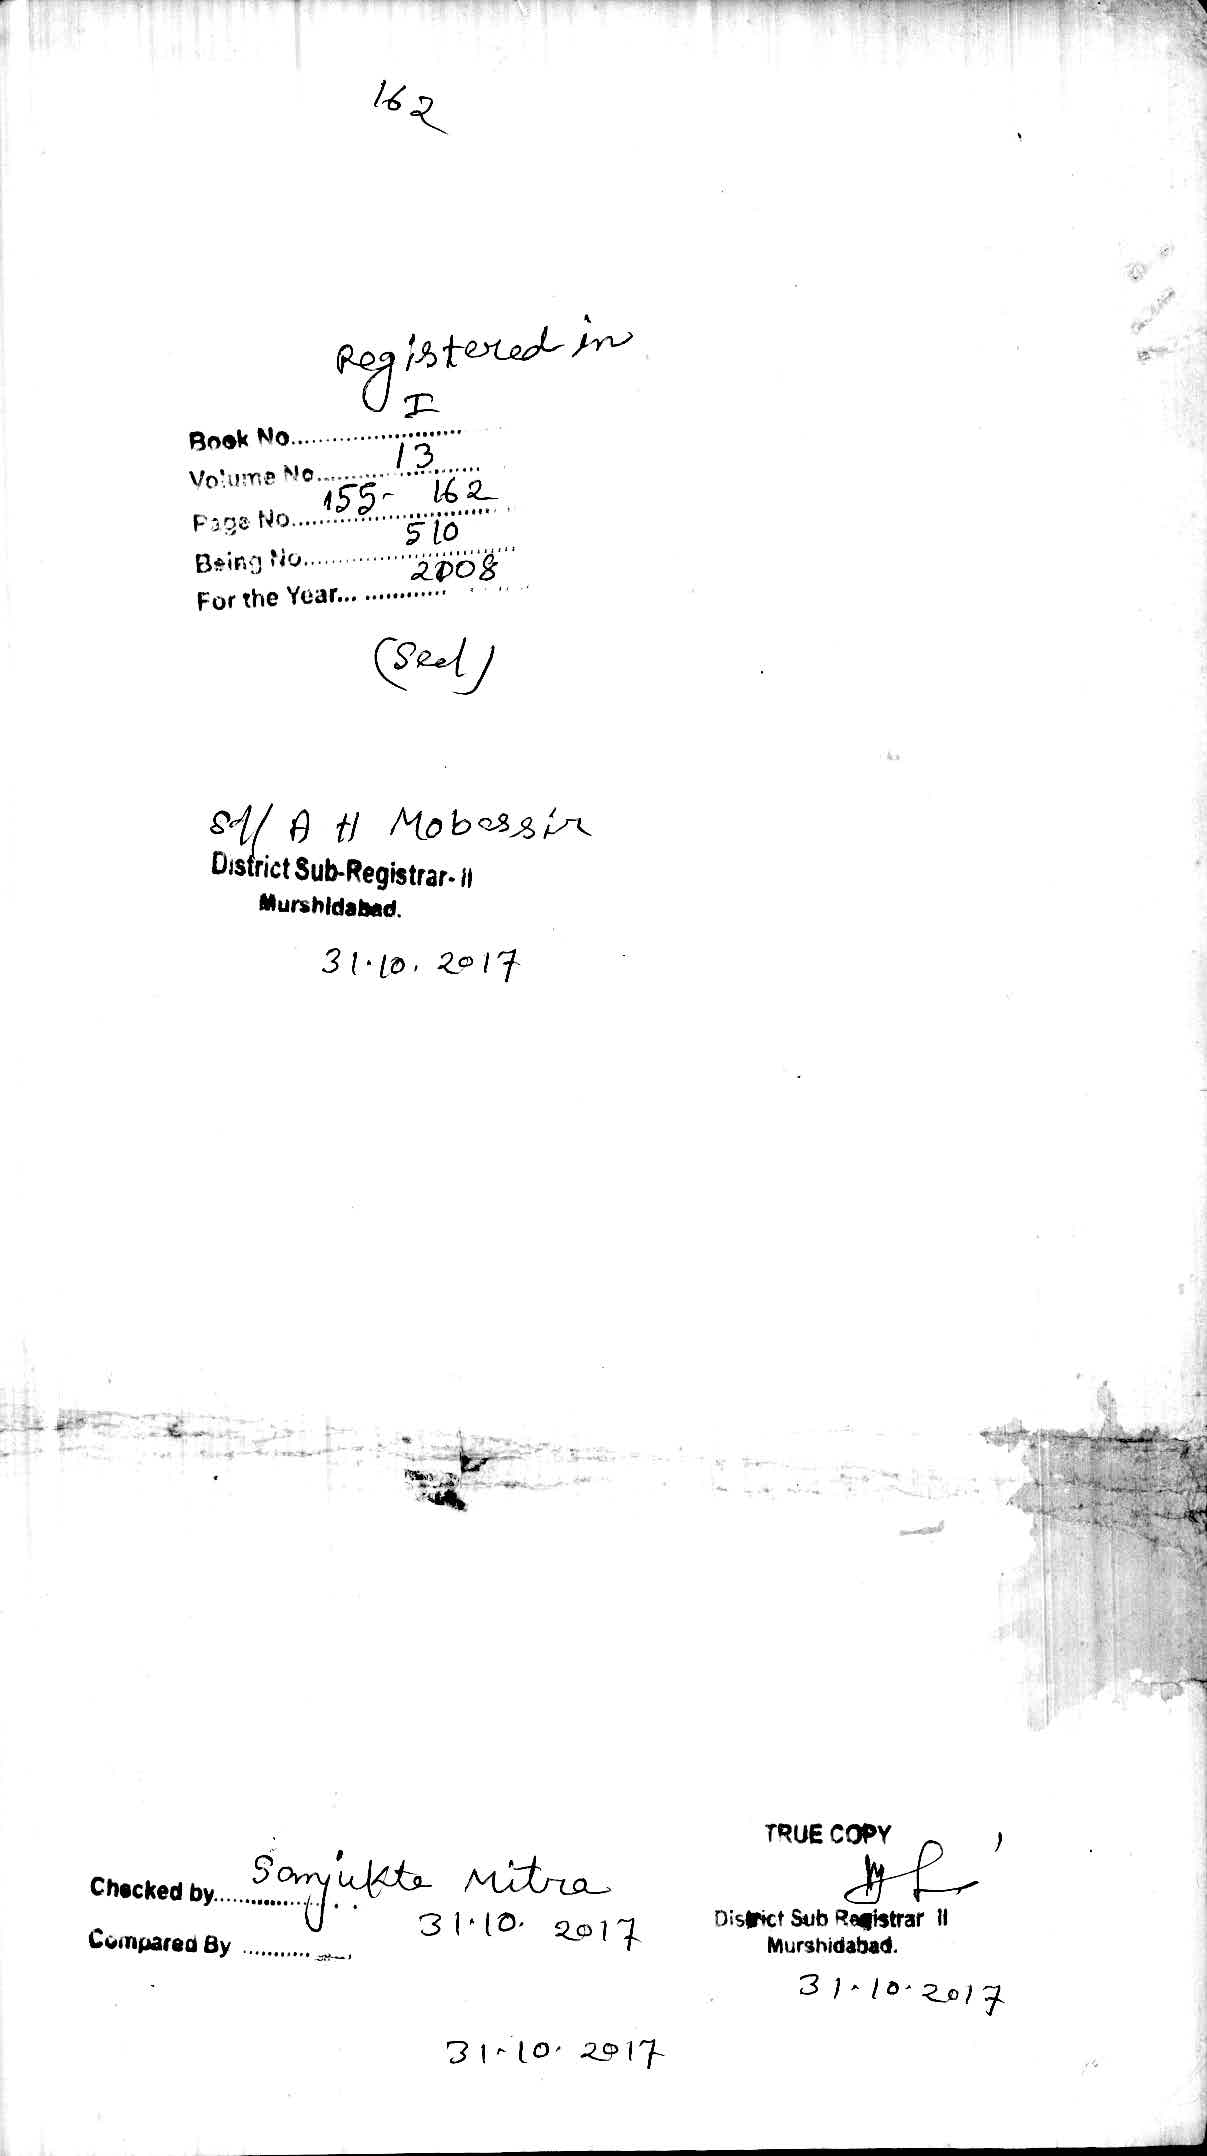 162
Registered in
Book No.............I.............
Volume No.............13.............
Page No.............155- 162.............
Being No.............510.............
For the Year... .............2008.............
(Seal)
Sd/ A H Mobassir
District Sub-Registrar- II
Murshidabad.
31.10.2017
TRUE COPY
Checked by.............Sanjukta Mitra
31.10.2017
District Sub Registrar II
Compared By ............
Murshidabad.
31.10.2017
31.10.2017